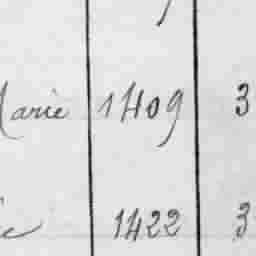 Marie 1409 3
1422 3